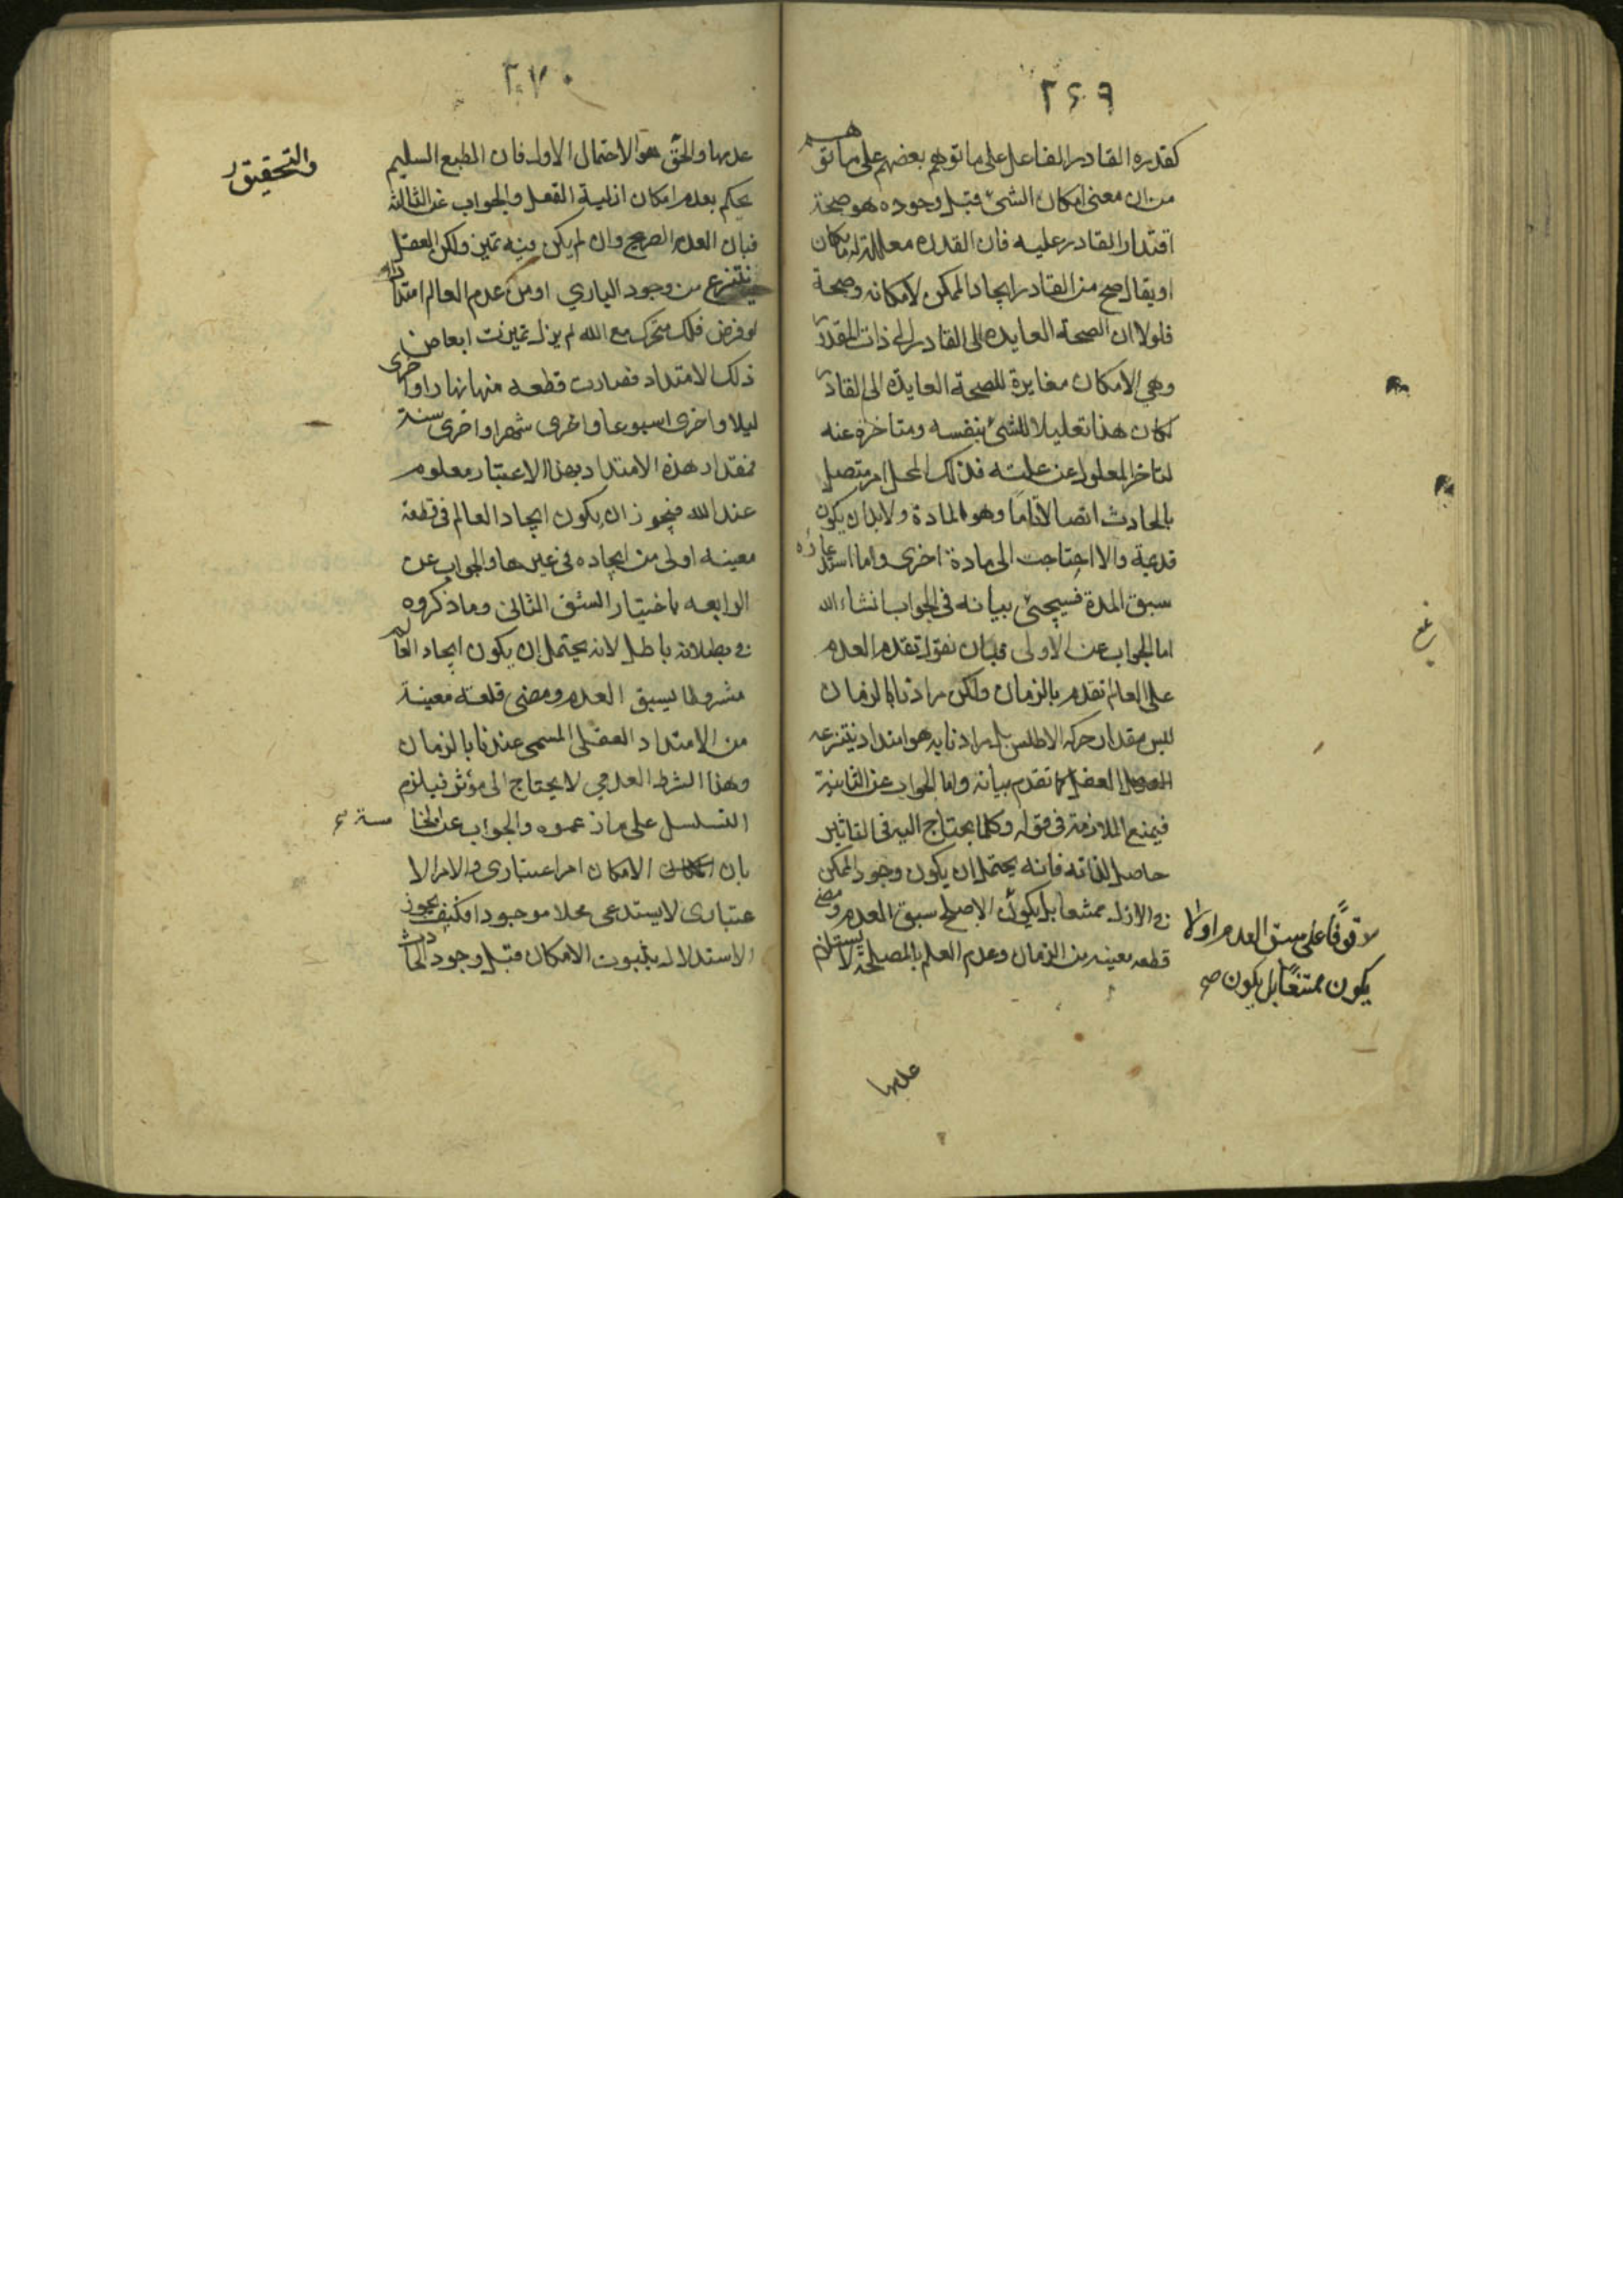 ٢٦٩
كقدره القادر الفاعل على ما توهم بعضهم على ما توهم
من ان معنى امكان الشئ قبل وجوده هو صحة
اقتدار القادر عليه فان القدره معللة
او يقال صح من القادر ايجاد الممكن لامكانه وصحة
فلولا ان الصحة العايده الى القادر الى ذات المقدور
وهي الامكان مغايرة للصحة العايدة الى القادر
لكان هذا تعليلا للشئ بنفسه ومتاخره عنه
لتاخر المعلول عن علته فذلك المحل امر متصل
بالحادث اتصالا تاما وهو المادة ولابد ان يكون
قديمة والا احتاجت الى مادة اخرى واما استدعاؤه
سبق المدة فسيجئ بيانه في الجواب انشاء الله
اما الجواب عن الاولى فبان نقول تقدم العدم
على العالم تقدم بالزمان ولكن مرادنا بالزمان
ليس مقدار حركه الاطلس بل مرادنا به هو امتداد ينتزعه
العقل كما تقدم بيانه واما الجواب عن الثانية
فيمنع الملازمة في قوله وكلما يحتاج اليه في التاثير
حاصل لذاته فانه يحتمل ان يكون وجود الممكن
في الازل ممتنعا بل يكون الاصلح سبق العدم ومضى
قطعه معينه من الزمان وعدم العلم بالمصلحة لا يستلزم
موقوفا على سبق العدم او لا
يكون ممتنعا بل يكون صح
عدمها
٢٧٠
عدمها والحق هو الاحتمال الاول فان الطبع السليم
يحكم بعدم امكان ازلية الفعل والجواب عن الثالثة
فبان العدم الصريح وان لم يكن فيه تميز ولكن العقل
ينتزع من وجود الباري او من عدم العالم امتدادا
لو فرض فلك متحرك مع الله لم يزل تميزت ابعاض
ذلك الامتداد فصارت قطعه منها نهارا واخرى
ليلا واخرى اسبوعا واخرى شهرا واخرى سنة
فمقدار هذه الامتداد بهذا الاعتبار معلوم
عند الله فيجوز ان يكون ايجاد العالم في قطعة
معينه اولى من ايجاده في غيرها والجواب عن
الرابعه باختيار الشق الثاني وما ذكروه
في بطلانه باطل لانه يحتمل ان يكون ايجاد العالم
مشروطا بسبق العدم ومضى قطعة معينة
من الامتداد العقلى المسمى عندنا بالزمان
وهذا الشرط العدمي لا يحتاج الى مؤثر فيلزم
التسلسل على ما زعموه والجواب عن الخامسة
بان الامكان امر اعتبارى والامر الا
عتبارى لا يستدعى محلا موجودا فكيف يجوز
الاستدلال بثبوت الامكان قبل وجود الحادث
والتحقيق